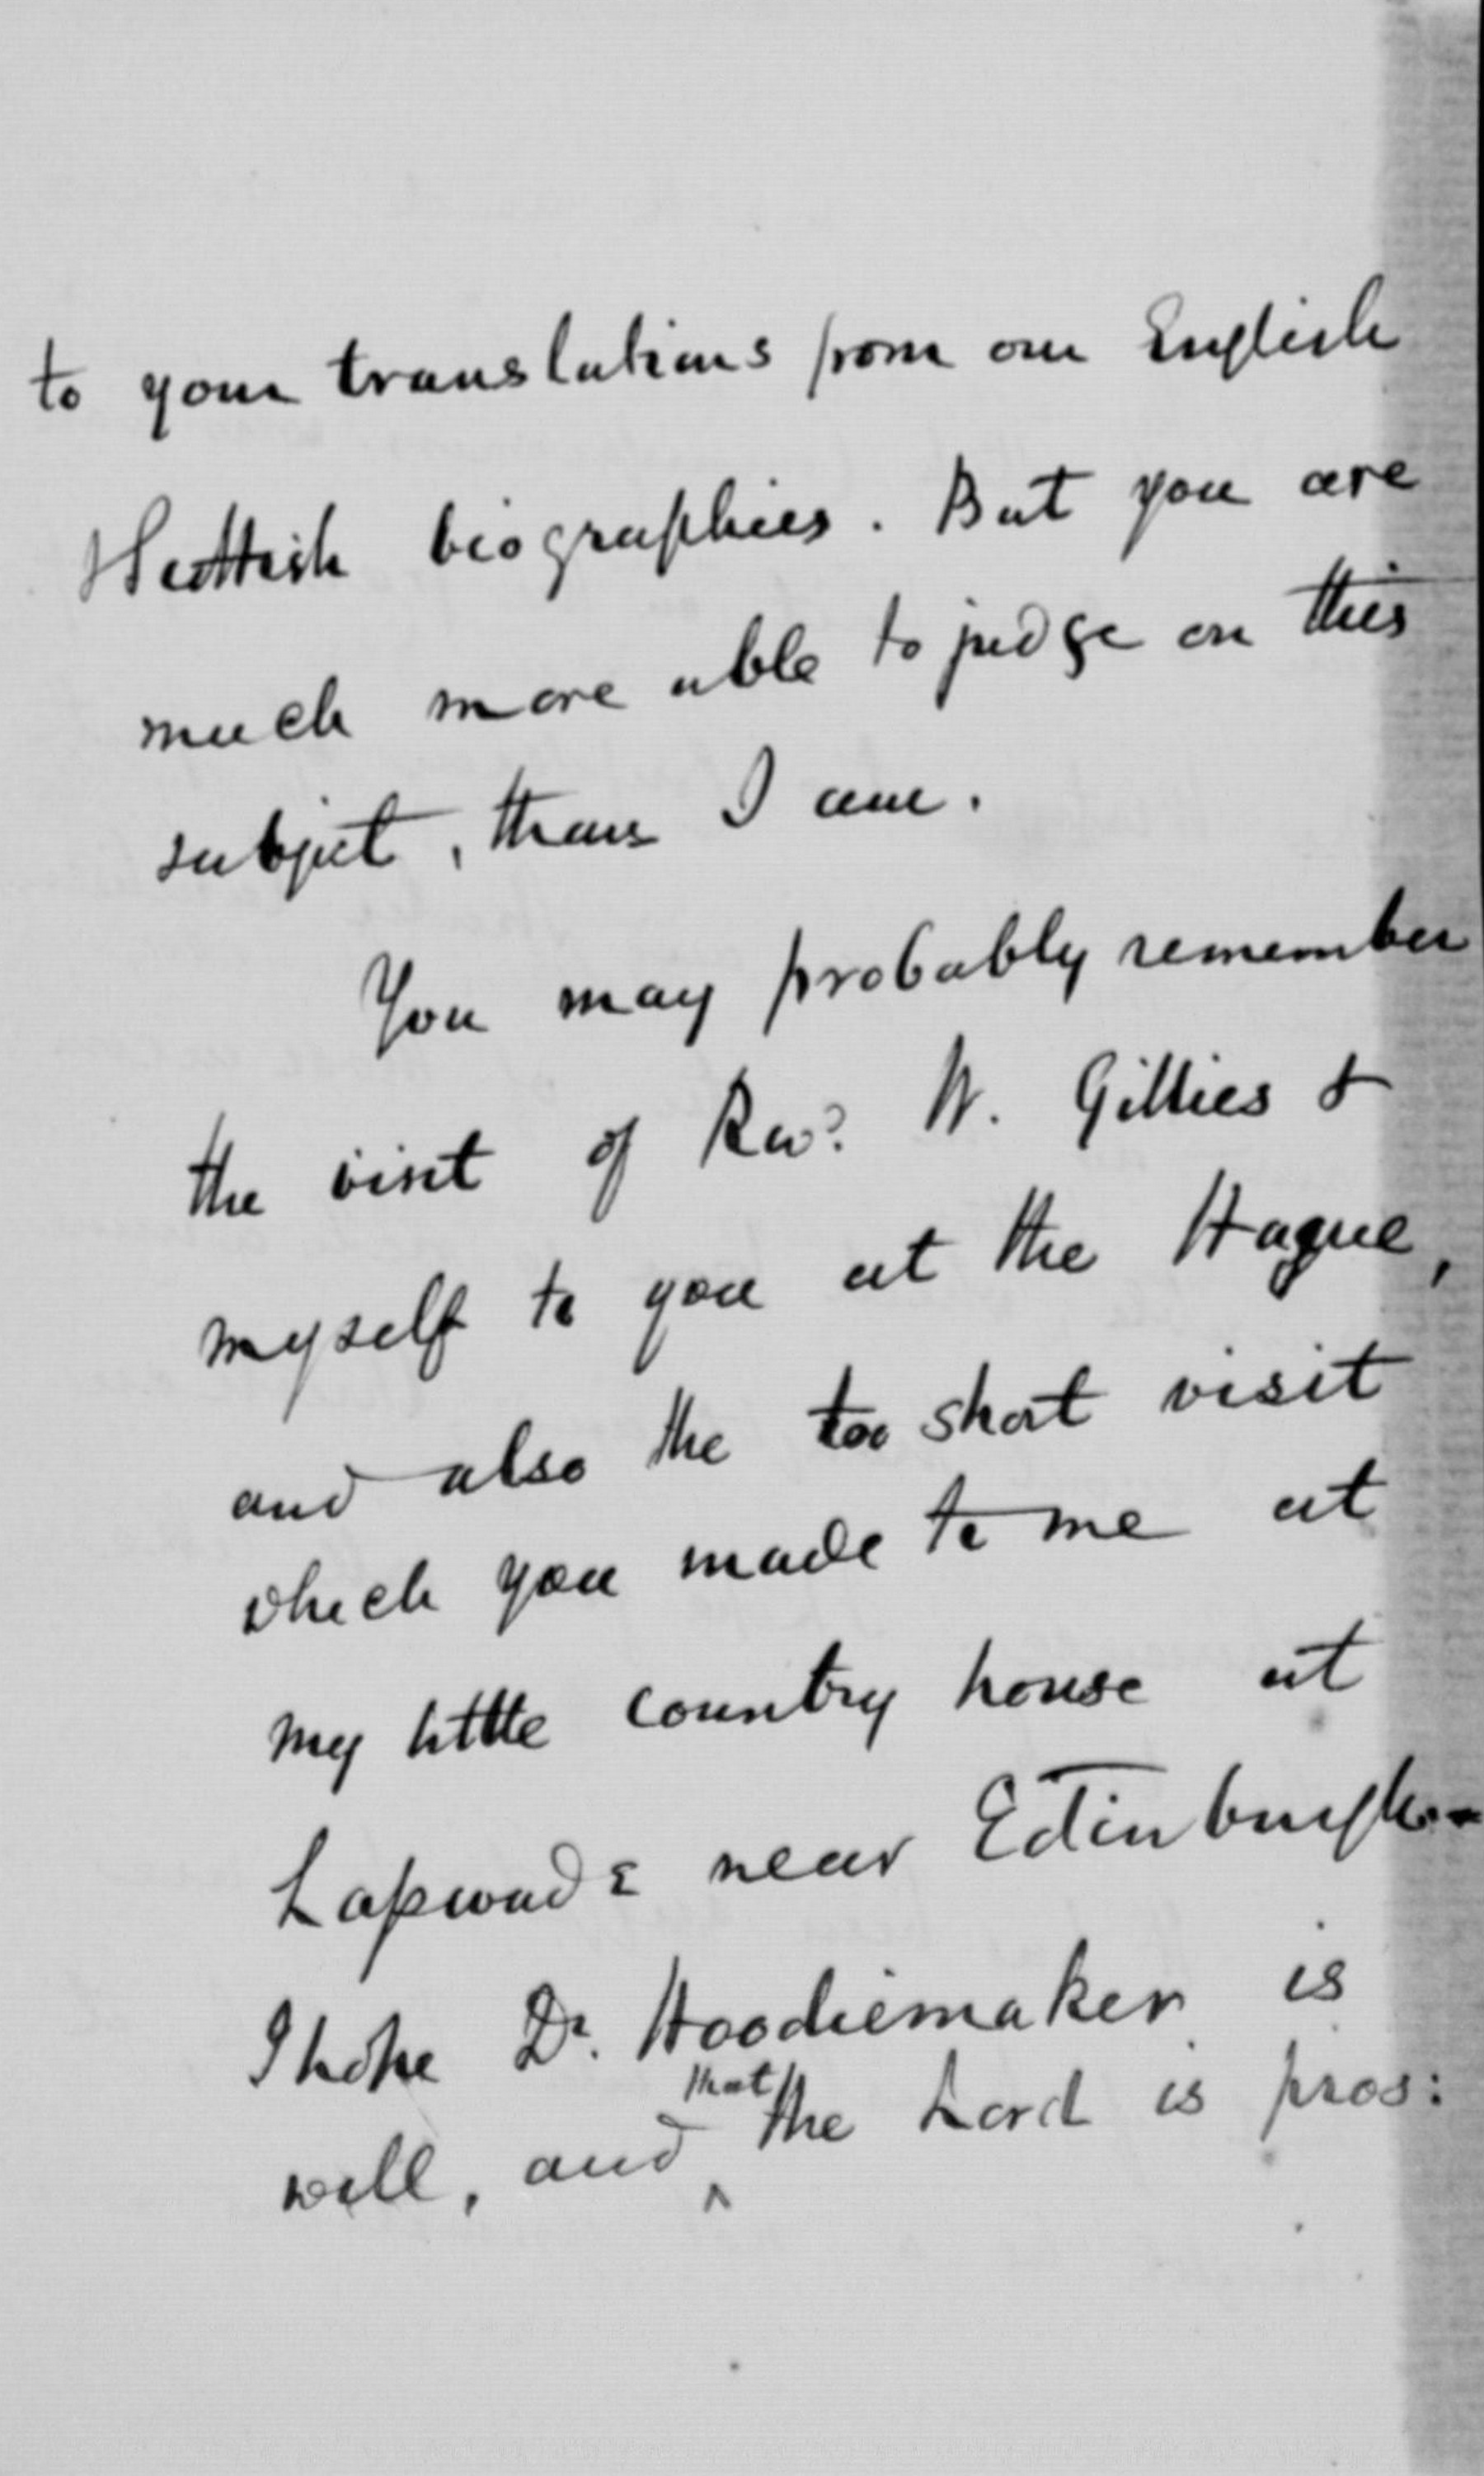 to your translations from our English
& Scottish biographies. But you are
much more able to judge on this
subject, than I am.
You may probably remember
the visit of Revd. W. Gillies &
myself to you at the Hague,
and also the too short visit
which you made to me at
my little country house at
Laswade near Edinburgh.-
I hope Dr. Hoodiemaker is
well, and that the Lord is pros: